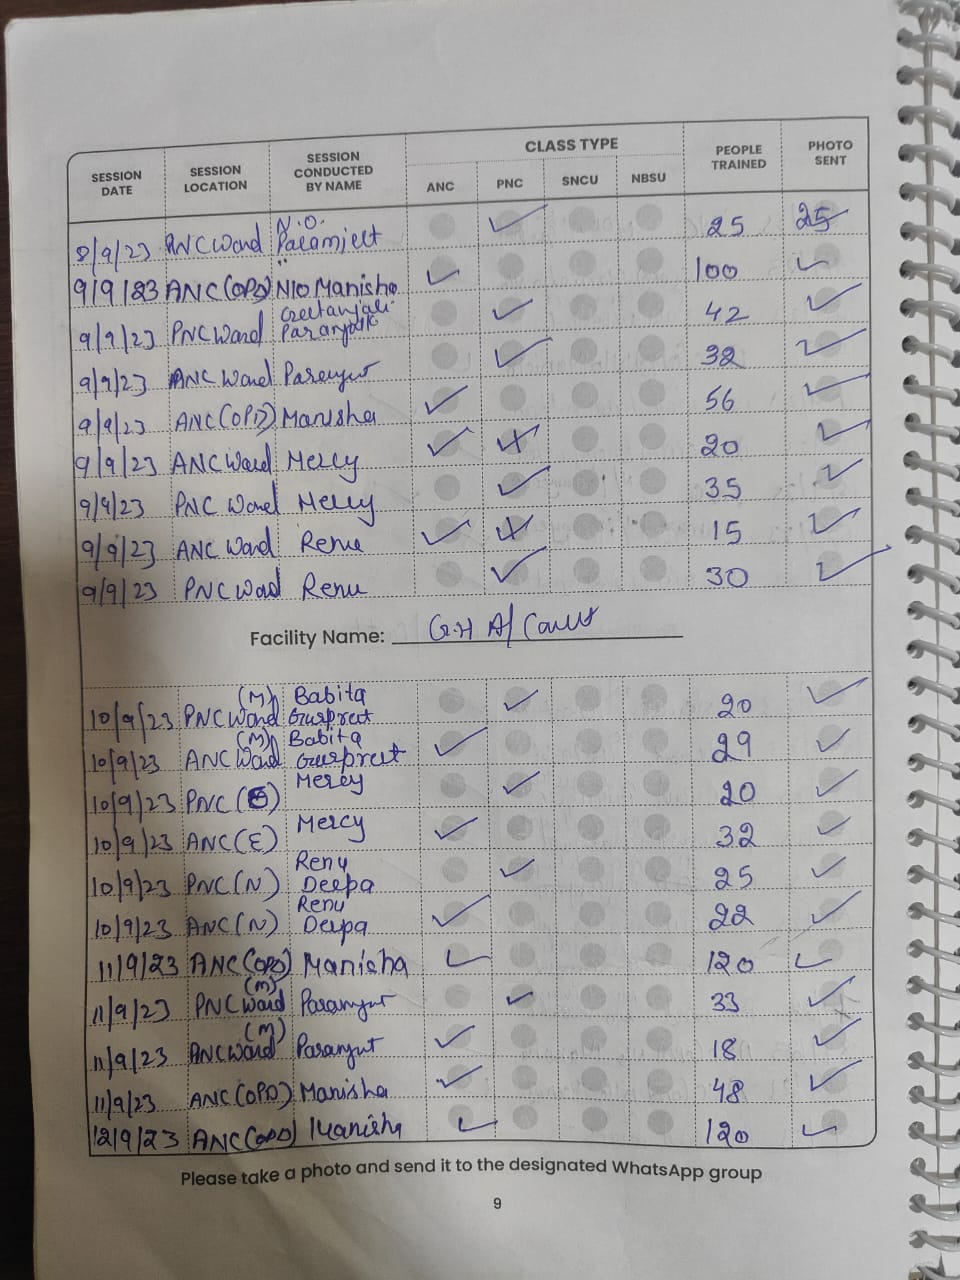 SESSION DATE SESSION LOCATION SESSION CONDUCTED BY NAME CLASS TYPE PEOPLE TRAINED PHOTO SENT
ANC PNC SNCU NBSU
8/9/23 ANC Ward N.O. Paramjeet ✓ 25 25
9/9/23 ANC(OPD) N/O Manisha ✓ 100 ✓
9/9/23 PNC Ward Geetanjali ✓ 42 ✓
9/9/23 ANC Ward ✓ 32 ✓
9/9/23 ANC(OPD) Manisha ✓ 56 ✓
9/9/23 ANC Ward Mercy ✓ 20 ✓
9/9/23 PNC Ward Mercy ✓ 35 ✓
9/9/23 ANC Ward Renu ✓ 15 ✓
9/9/23 PNC Ward Renu ✓ 30 ✓
Facility Name: G.H A/
10/9/23 PNC Ward (M) Babita Gurpreet ✓ 20 ✓
10/9/23 ANC Ward (M) Babita Gurpreet ✓ 29 ✓
10/9/23 PNC (E) Mercy ✓ 20 ✓
10/9/23 ANC (E) Mercy ✓ 32 ✓
10/9/23 PNC (N) Renu Deepa ✓ 25 ✓
10/9/23 ANC (N) Renu Deepa ✓ 22 ✓
11/9/23 ANC (OPD) Manisha ✓ 120 ✓
11/9/23 PNC Ward (M) ✓ 33 ✓
11/9/23 ANC Ward (M) ✓ 18 ✓
11/9/23 ANC (OPD) Manisha ✓ 48 ✓
12/9/23 ANC (OPD) Manisha ✓ 120 ✓
Please take a photo and send it to the designated WhatsApp group
9